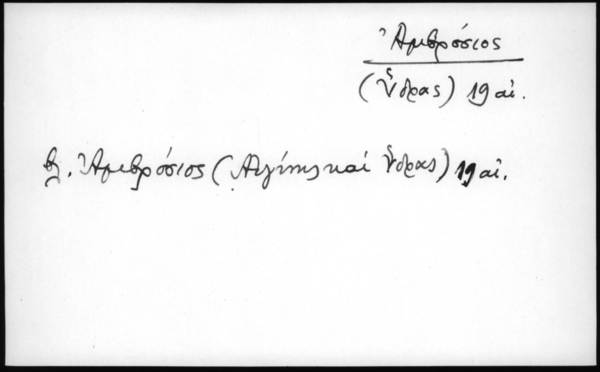 Ἀμβρόσιος
(Ὕδρας) 19 αἰ.
βλ. Ἀμβρόσιος (Αἰγίνης καὶ Ὕδρας) 19 αἰ.